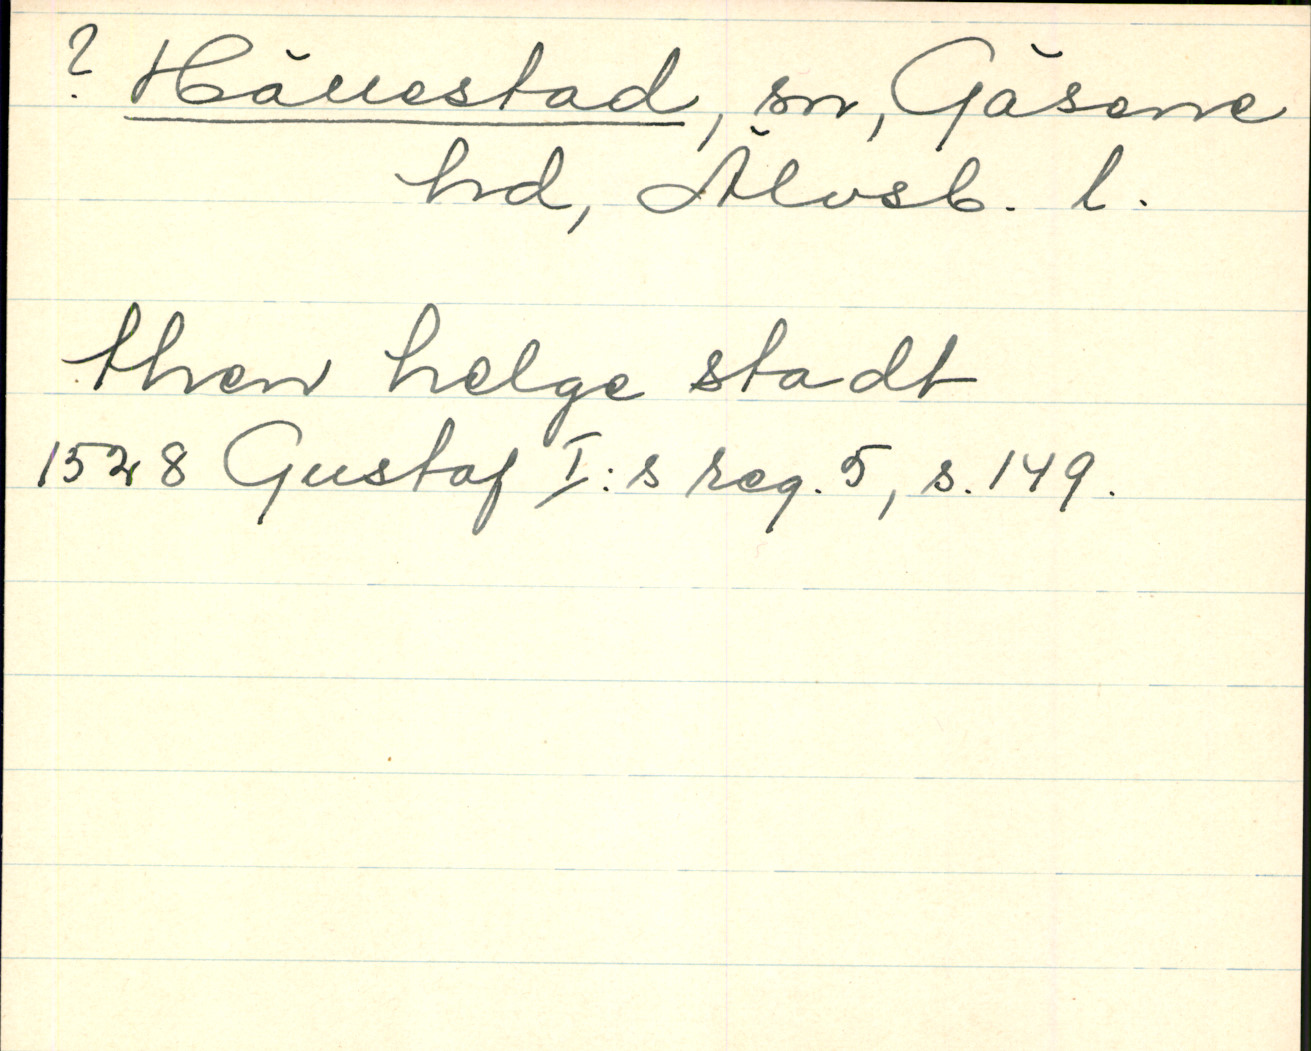 ? Hällestad, sn, Gäsene
hd, Älvsb. l.
then helge stadt
1528 Gustaf I:s reg. 5, s. 149.